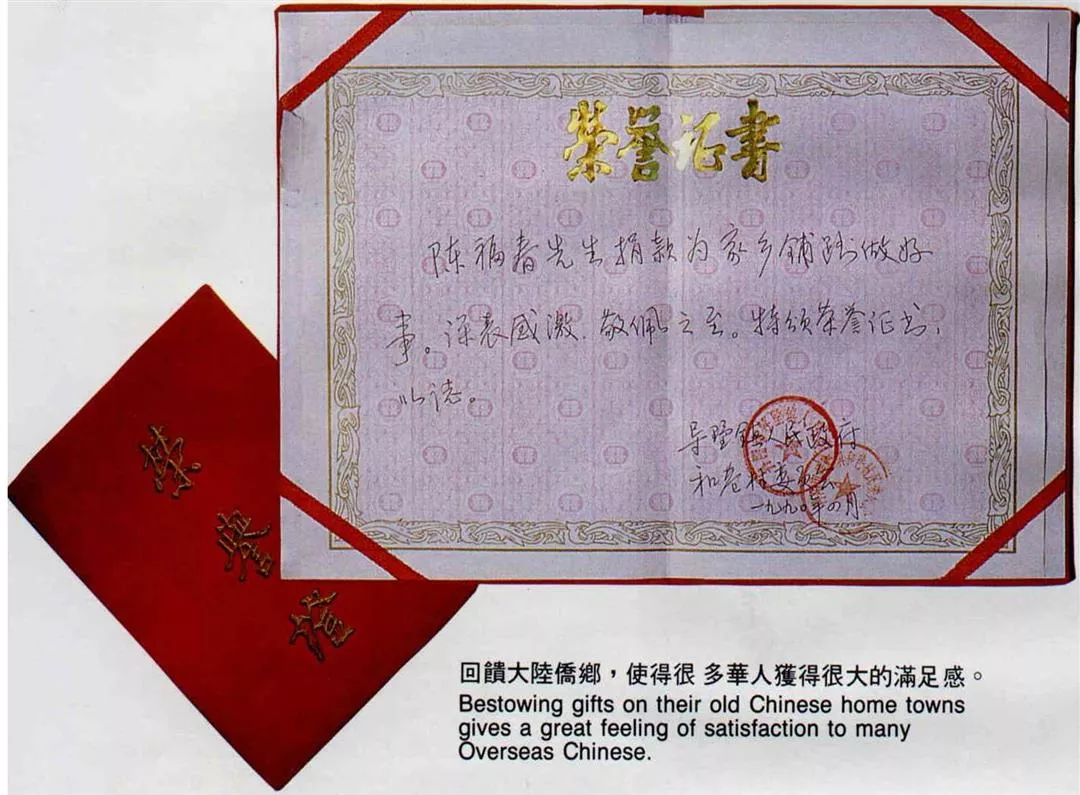 榮誉证書
陈福春先生捐款为家乡铺路做好
事。深表感激、敬佩之至。特颁荣誉证书，
以誌。
导墅镇人民政府
和巷村委员会
一九九〇年四月
荣誉
回饋大陸僑鄉，使得很多華人獲得很大的滿足感。
Bestowing gifts on their old Chinese home towns
gives a great feeling of satisfaction to many
Overseas Chinese.